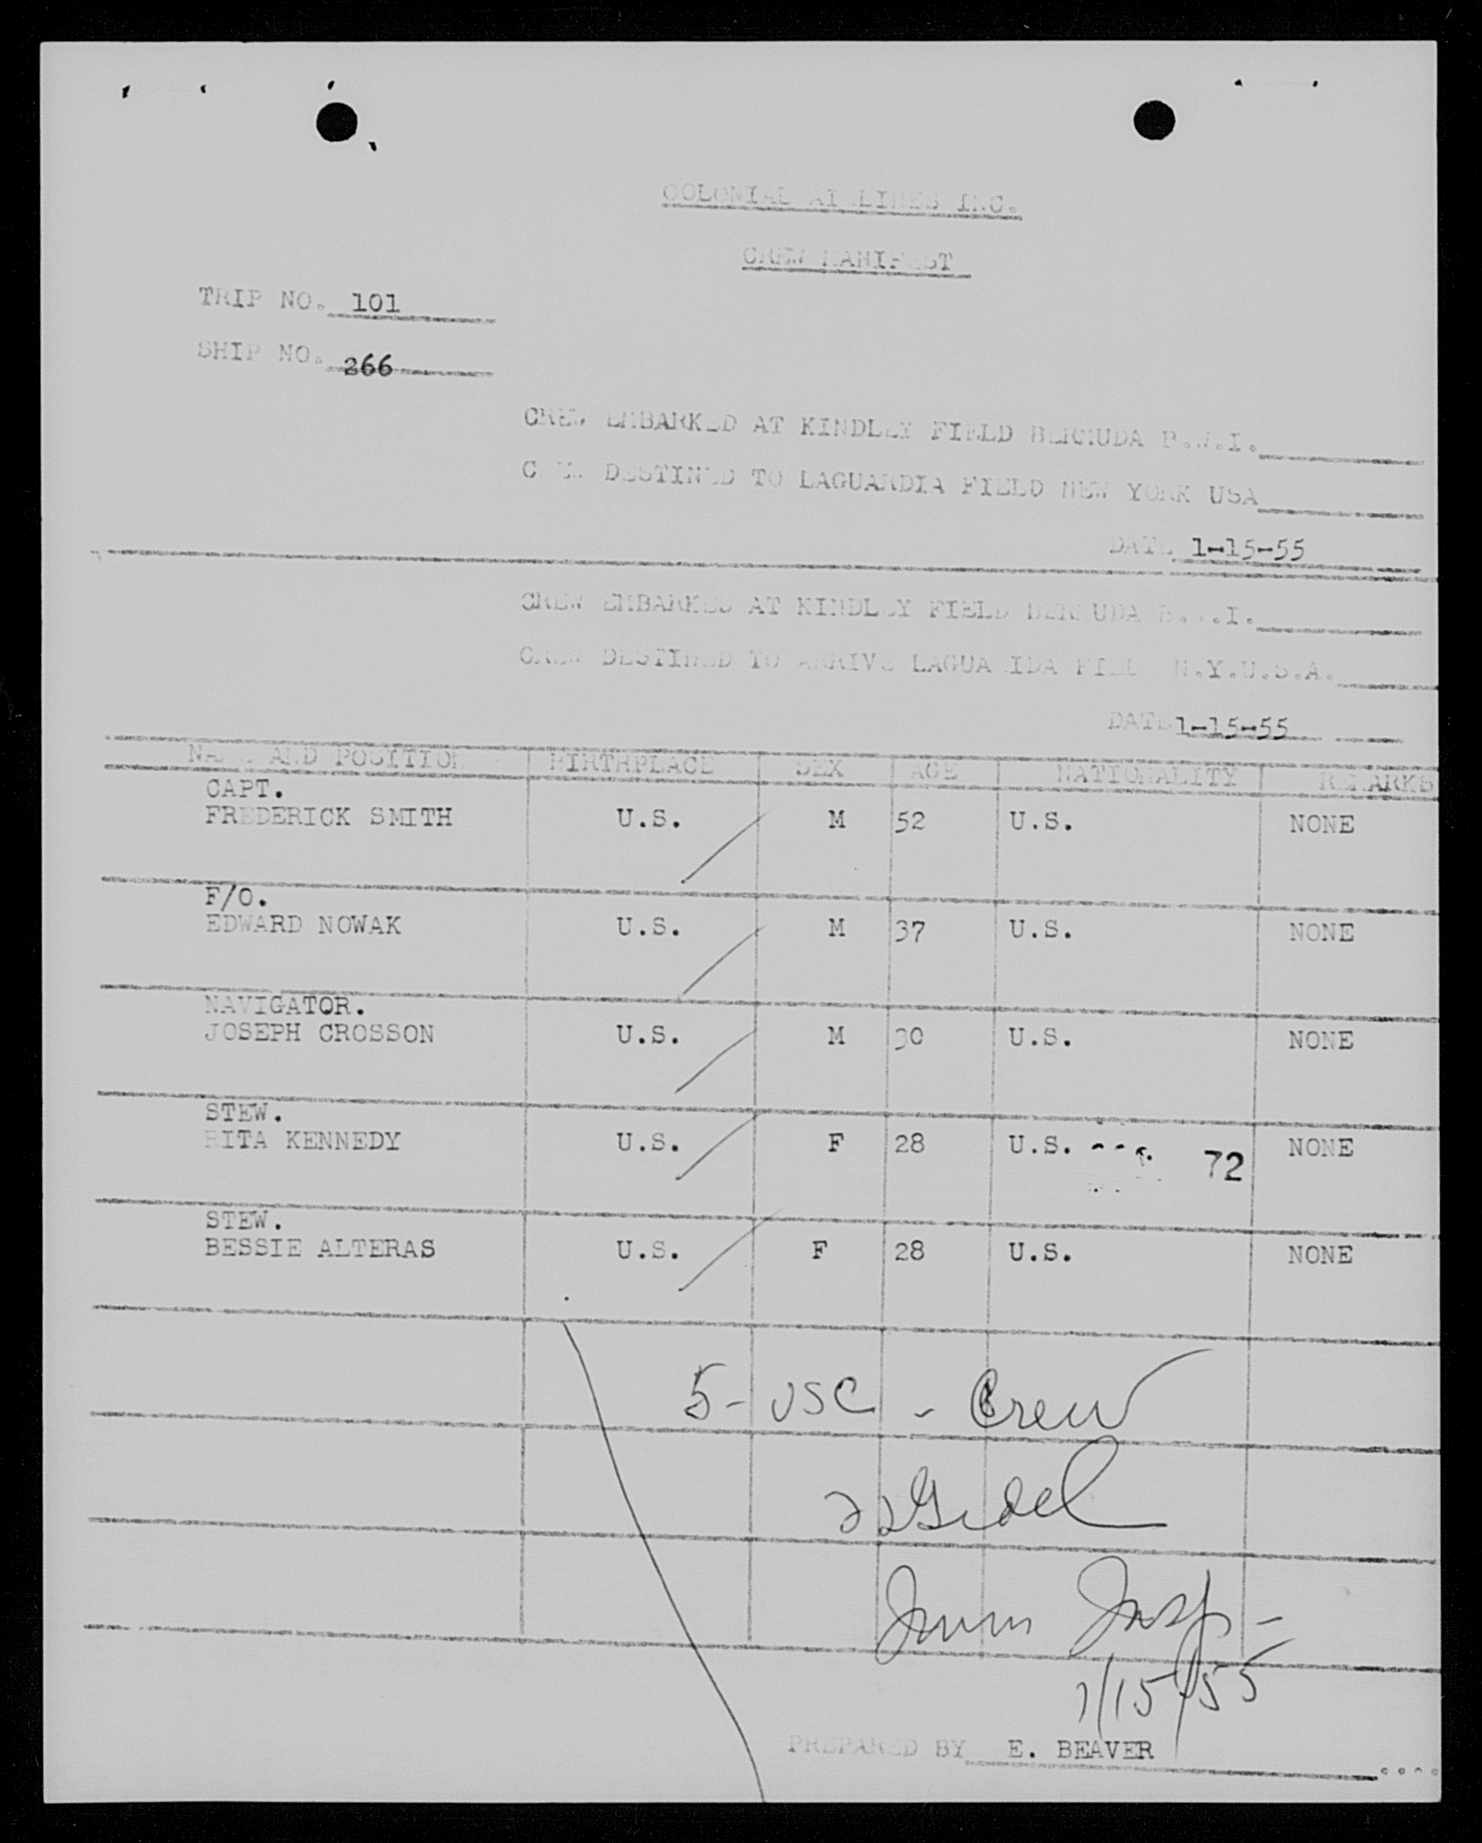 COLONIAL AIRLINES INC.
CREW MANIFEST
TRIP NO. 101
SHIP NO. 266
CREW EMBARKED AT KINDLEY FIELD BERMUDA B.W.I.
CREW DESTINED TO LAGUARDIA FIELD NEW YORK USA
DATE 1-15-55
CREW EMBARKED AT KINDLEY FIELD BERMUDA B.W.I.
CREW DESTINED TO ARRIVE LAGUARIDA FIELD N.Y.U.S.A.
DATE 1-15-55
NAME AND POSITION BIRTHPLACE SEX AGE NATIONALITY REMARKS
CAPT.
FREDERICK SMITH U.S. M 52 U.S. NONE
F/O.
EDWARD NOWAK U.S. M 37 U.S. NONE
NAVIGATOR.
JOSEPH CROSSON U.S. M 30 U.S. NONE
STEW.
RITA KENNEDY U.S. F 28 U.S. 72 NONE
STEW.
BESSIE ALTERAS U.S. F 28 U.S. NONE
5- USC - Crew
Imm Insp-
1/15/55
PREPARED BY E. BEAVER